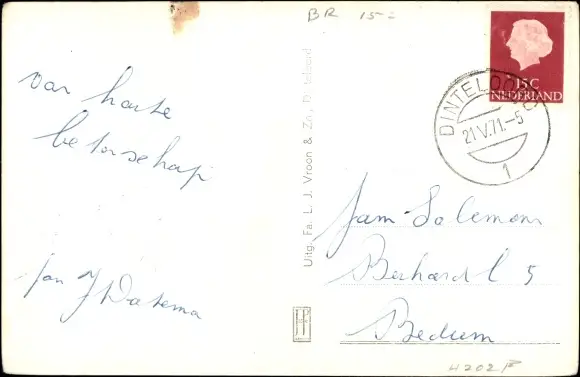 BR 15=
15C
NEDERLAND
DINTELOORD
21.V.71.-5
1
van harte
beterschap
fam J Watema
Uitg. Fa. L. J. Vroon & Zn., D
fam Salemons
5
Bedum
H202F